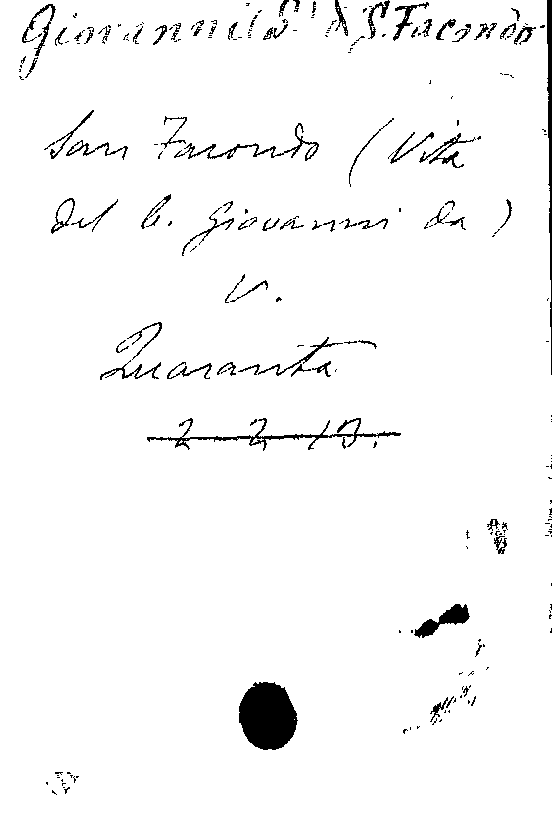 Giovanni (S.) d S. Facondo
San Facondo (Vita
del b. Giovanni da)
V.
Quaranta
2 2 13.